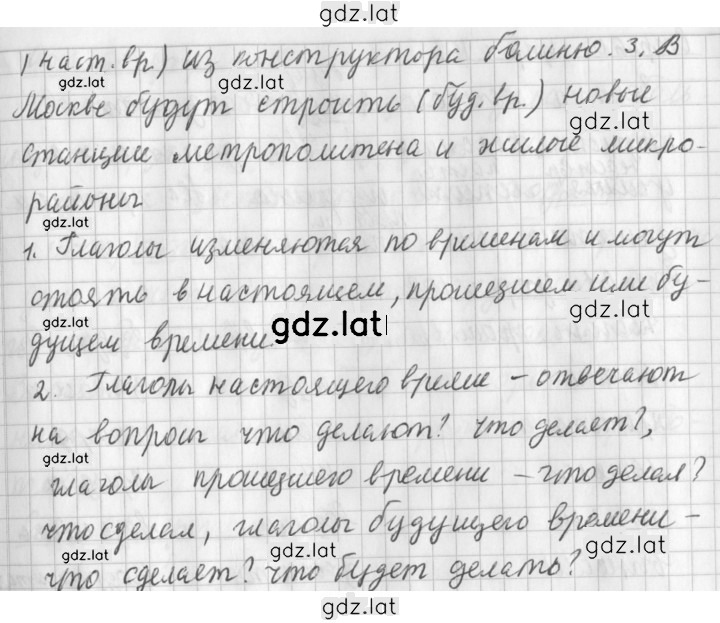 gdz.lat
(наст.вр.) из конструктора башню. 3. В
gdz.lat
gdz.lat
Москве будут строить (буд.вр.) новые
gdz.lat
станции метрополитена и жилые микро-
районы
gdz.lat
1. Глаголы изменяются по временам и могут
стоять в настоящем, прошедшем или бу-
gdz.lat
дущем времени.
gdz.lat
2. Глаголы настоящего време - отвечают
на вопросы что делают? что делает?,
gdz.lat
глаголы прошедшего времени - что делал?
что сделал, глаголы будущего времени -
gdz.lat
gdz.lat
gdz.lat
что сделает? что будет делать?
gdz.lat